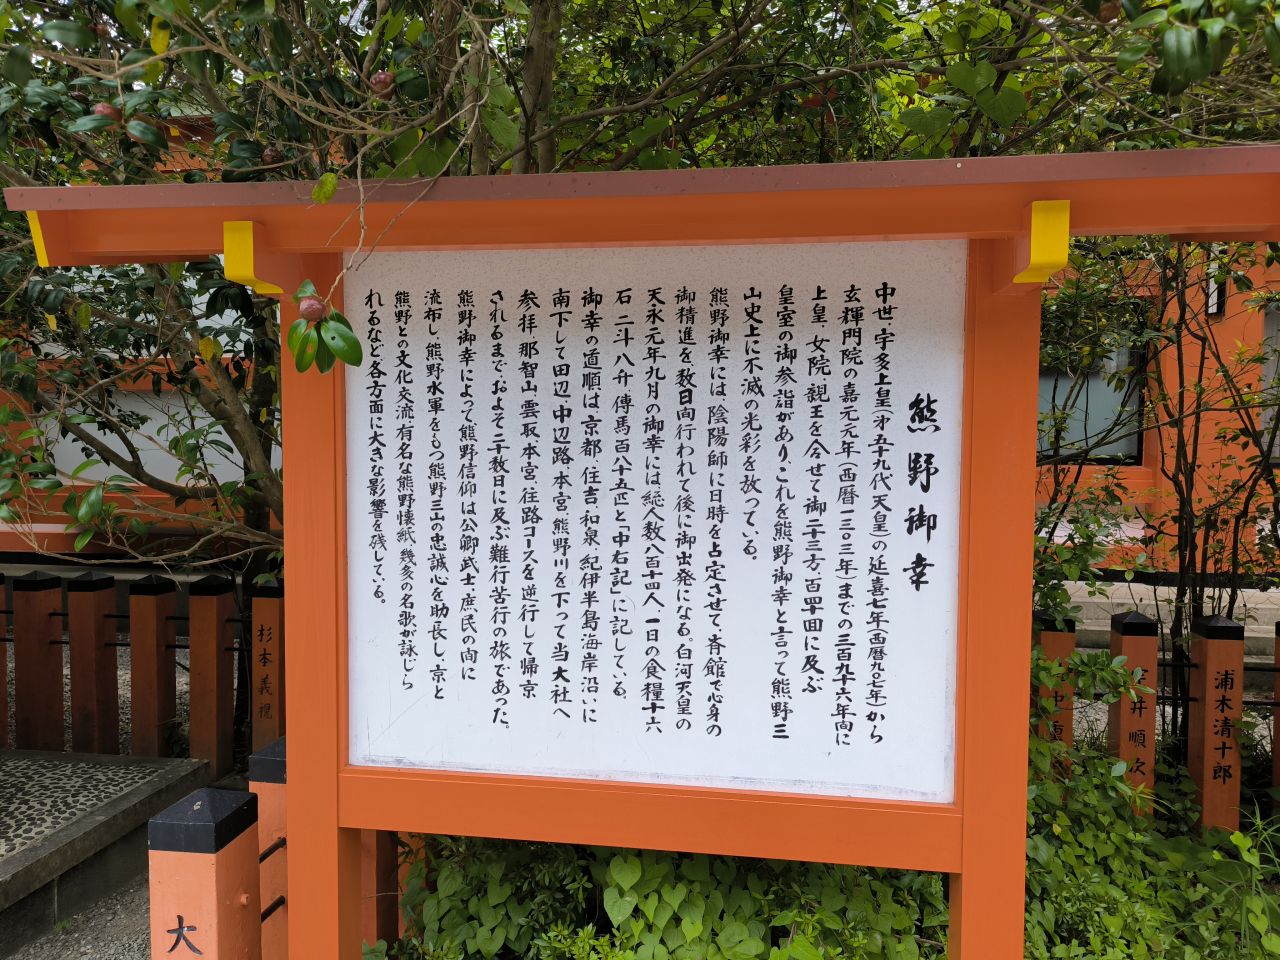 熊野御幸
中世、宇多上皇(才五十九代天皇)の延喜七年(西暦九〇七年)から
玄輝門院の嘉元元年(西暦一三〇三年)までの三百九十六年间に
上皇、女院、親王を合せて御二十三方、百四十回に及ぶ
皇室の御参詣があり、これを熊野御幸と言って熊野三
山史上に不滅の光彩を放っている。
熊野御幸には、陰陽師に日時を占定させて、斉館で心身の
御精進を数日间行われて後に御出発になる。白河天皇の
天永元年九月の御幸には、総人数八百十四人、一日の食糧十六
石、二斗八升、傳馬百八十五匹と「中右記」に記している。
御幸の道順は京都、住吉、和泉、紀伊半島海岸沿いに
南下して田辺、中辺路、本宮、熊野川を下って当大社へ
参拝、那智山、雲取、本宮、往路コースを逆行して帰京
されるまで、およそ二十数日に及ぶ難行苦行の旅であった。
熊野御幸によって熊野信仰は公卿、武士、庶民の间に
流布し、熊野水軍をもつ熊野三山の忠誠心を助長し、京と
熊野との文化交流、有名な熊野懐紙、幾多の名歌が詠じら
れるなど各方面に大きな影響を残している。
杉本義視
井順次
浦木清十郎
大